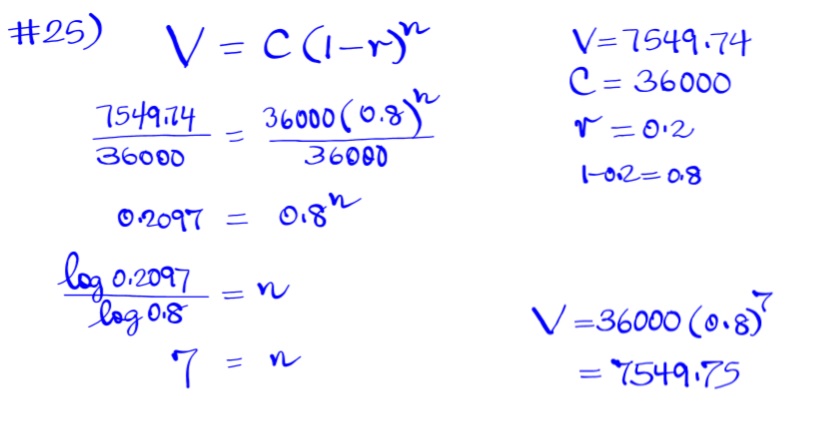 #25) V = C(1-r)^n
7549.74/36000 = 36000(0.8)^n/36000
0.2097 = 0.8^n
log 0.2097/log 0.8 = n
7 = n
V = 7549.74
C = 36000
r = 0.2
1-0.2 = 0.8
V = 36000(0.8)^7
= 7549.75